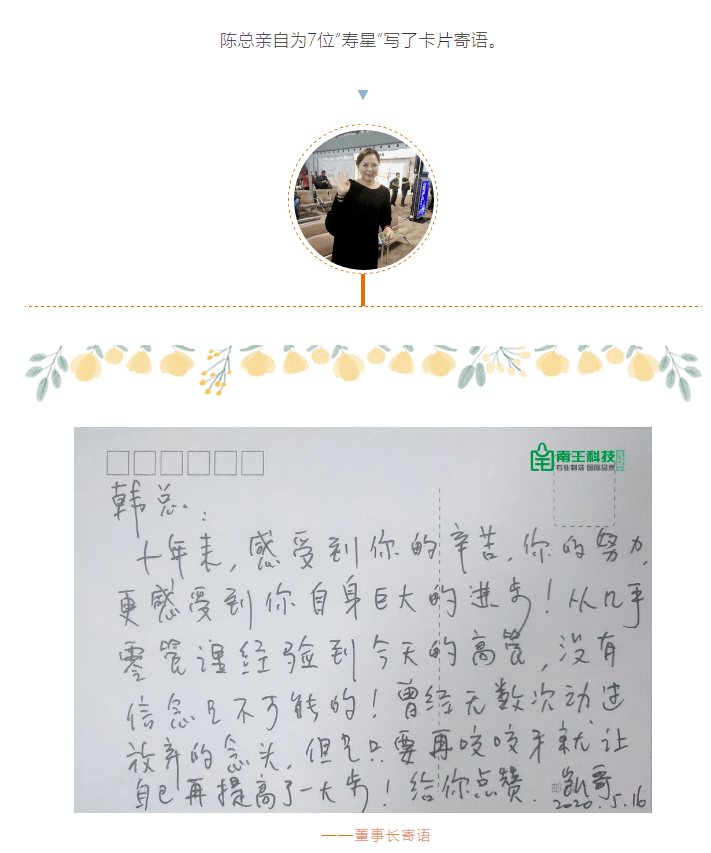 陈总亲自为7位“寿星”写了卡片寄语。
南王科技
专业制袋 国际品质
韩总：
十年来，感受到你的辛苦，你的努力，
更感受到你自身巨大的进步！从几乎
零管理经验到今天的高管，没有
信念是不可能的！曾经无数次动过
放弃的念头，但是只要再咬咬牙就让
自己再提高了一大步！给你点赞．凯哥
2020.5.16
——董事长寄语